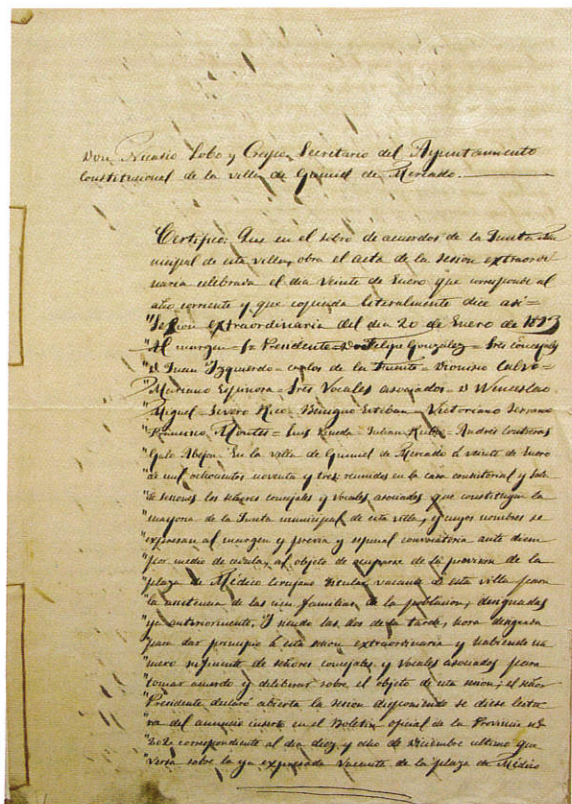 Don Nicasio Lobo y Crespo, Secretario del Ayuntamiento
Constitucional de la villa de Gumiel de Mercado.
Certifico: Que en el libro de acuerdos de la Junta mu-
nicipal de esta villa, obra el acta de la sesion extraordi-
naria celebrada el dia veinte de Enero que corresponde al
año corriente y que copiada literalmente dice asi=
"Sesion extraordinaria del dia 20 de Enero de 1893
Al margen = Sr Presidente = Dn Felipe González = Sres concejales
"D Juan Izquierdo = Carlos de la Fuente = Dionisio Calvo =
"Mariano Espinosa = Sres Vocales asociados = D Wenceslao
"Miguel = Severo Rico = Benigno Esteban = Victoriano Serrano
"Francisco Montes = Luis Pineda = Julian Rubio = Andrés Contreras
"Galo Abejon = En la villa de Gumiel de Mercado á veinte de Enero
"de mil ochocientos noventa y tres: reunidos en la casa consistorial y Sala
"de sesiones los señores concejales y vocales asociados que constituyen la
"mayoria de la Junta municipal de esta villa, y cuyos nombres se
"expresan al margen y previa y especial convocatoria ante diem
"por medio de cedula, al objeto de ocuparse de la provision de la
"plaza de Médico Cirujano titular, vacante de esta villa para
"la asistencia de las cien familias de la poblacion, designadas
"ya anteriormente. Y siendo las dos de la tarde, hora designada
"para dar principio á esta sesion extraordinaria y habiendo nu-
"mero suficiente de señores concejales y vocales asociados para
"tomar acuerdo y deliberar sobre el objeto de esta sesion; el señor
"Presidente declaró abierta la sesion disponiendo se diese lectu-
"ra del anuncio inserto en el Boletin oficial de la Provincia nº
"202 correspondiente al dia diez y ocho de Diciembre ultimo que
"versa sobre la ya expresada vacante de la plaza de Médico